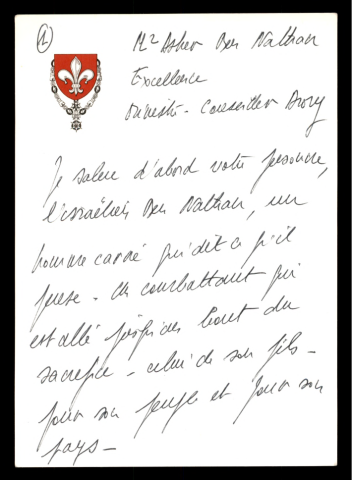 1
Mr Asher Ben Nathan
Excellence
Ministre - Conseiller Avry
Je salue d'abord votre présence,
l'israëlien Ben Nathan, un
homme carré qui dit ce qu'il
pense - Un combattant qui
est allé jusqu'au bout du
sacrifice - celui de son fils -
pour son peuple et pour son
pays -